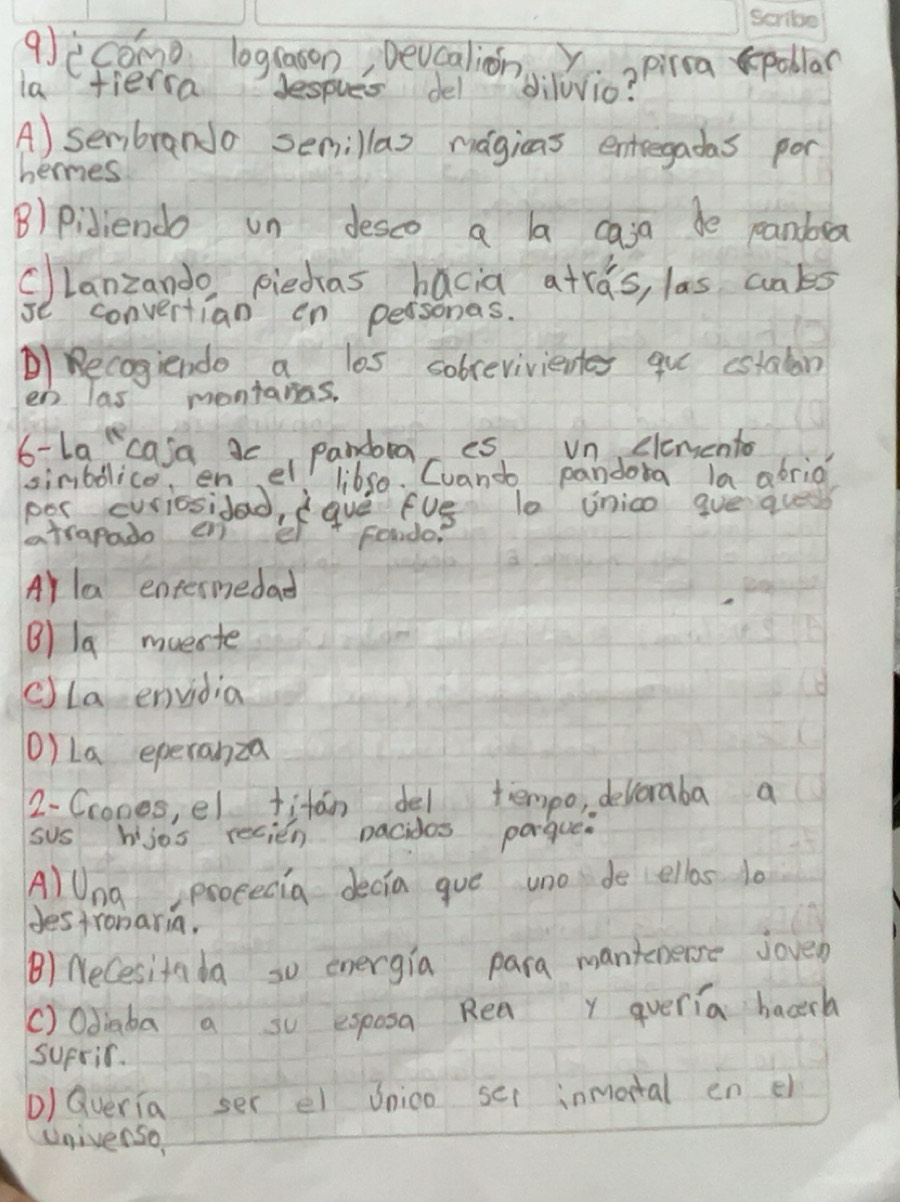 Scribe
9) ¿cómo lograron, Deucalión y pirra repoblar
la tierra después del diluvio?
A) sembrando semillas mágicas entregadas por
hermes
B) Pidiendo un deseo a la caja de pandora
C) Lanzando piedras hacia atrás, las cuales
se convertían en personas.
D) Recogiendo a los sobrevivientes que estaban
en las montañas.
6-La "caja de pandora es un elemento
simbólico, en el libro. Cuando pandora la abrió
por curiosidad, ¿qué fue lo único que quedó
atrapado en el fondo?
A) la enfermedad
B) la muerte
C) La envidia
D) La eperanza
2-Crones, el titán del tiempo, devoraba a
sus hijos recién nacidos porque:
A) Una profecía decía que uno de ellos lo
destronaría.
B) Necesitada su energía para mantenerse joven
C) Odiaba a su esposa Rea y quería hacerla
sufrir.
D) Quería ser el único ser inmortal en el
universo.